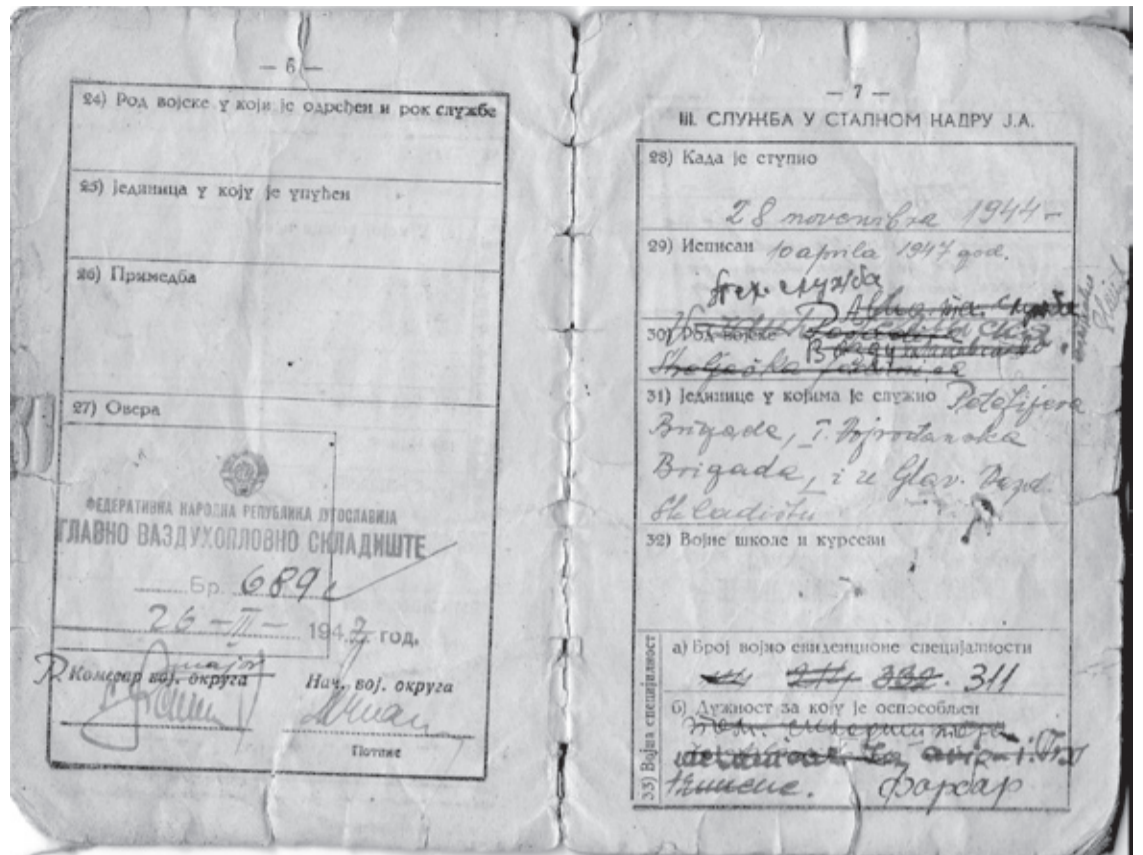 — 6 —
24) Род војске у који је одређен и рок службе
25) Јединица у коју је упућен
26) Примедба
27) Овера
ФЕДЕРАТИВНА НАРОДНА РЕПУБЛИКА ЈУГОСЛАВИЈА
ГЛАВНО ВАЗДУХОПЛОВНО СКЛАДИШТЕ
Бр. 689
26-II- 1947 год.
мајор
Комесар вој. округа
Нач. вој. округа
Потпис
— 7 —
III. СЛУЖБА У СТАЛНОМ КАДРУ Ј.А.
28) Када је ступио
28 novembra 1944-
29) Исписан 10 aprila 1947 god.
служба
30) Род војске
31) Јединице у којима је служио Petefijeva
Brigade, I. Vojvođanska
Brigada, i u Glav. Vazd.
Skladištu
32) Војне школе и курсеви
33) Војна специјалност
а) Број војно евиденционе специјалности
332. 311
б) Дужност за коју је оспособљен
фарбар